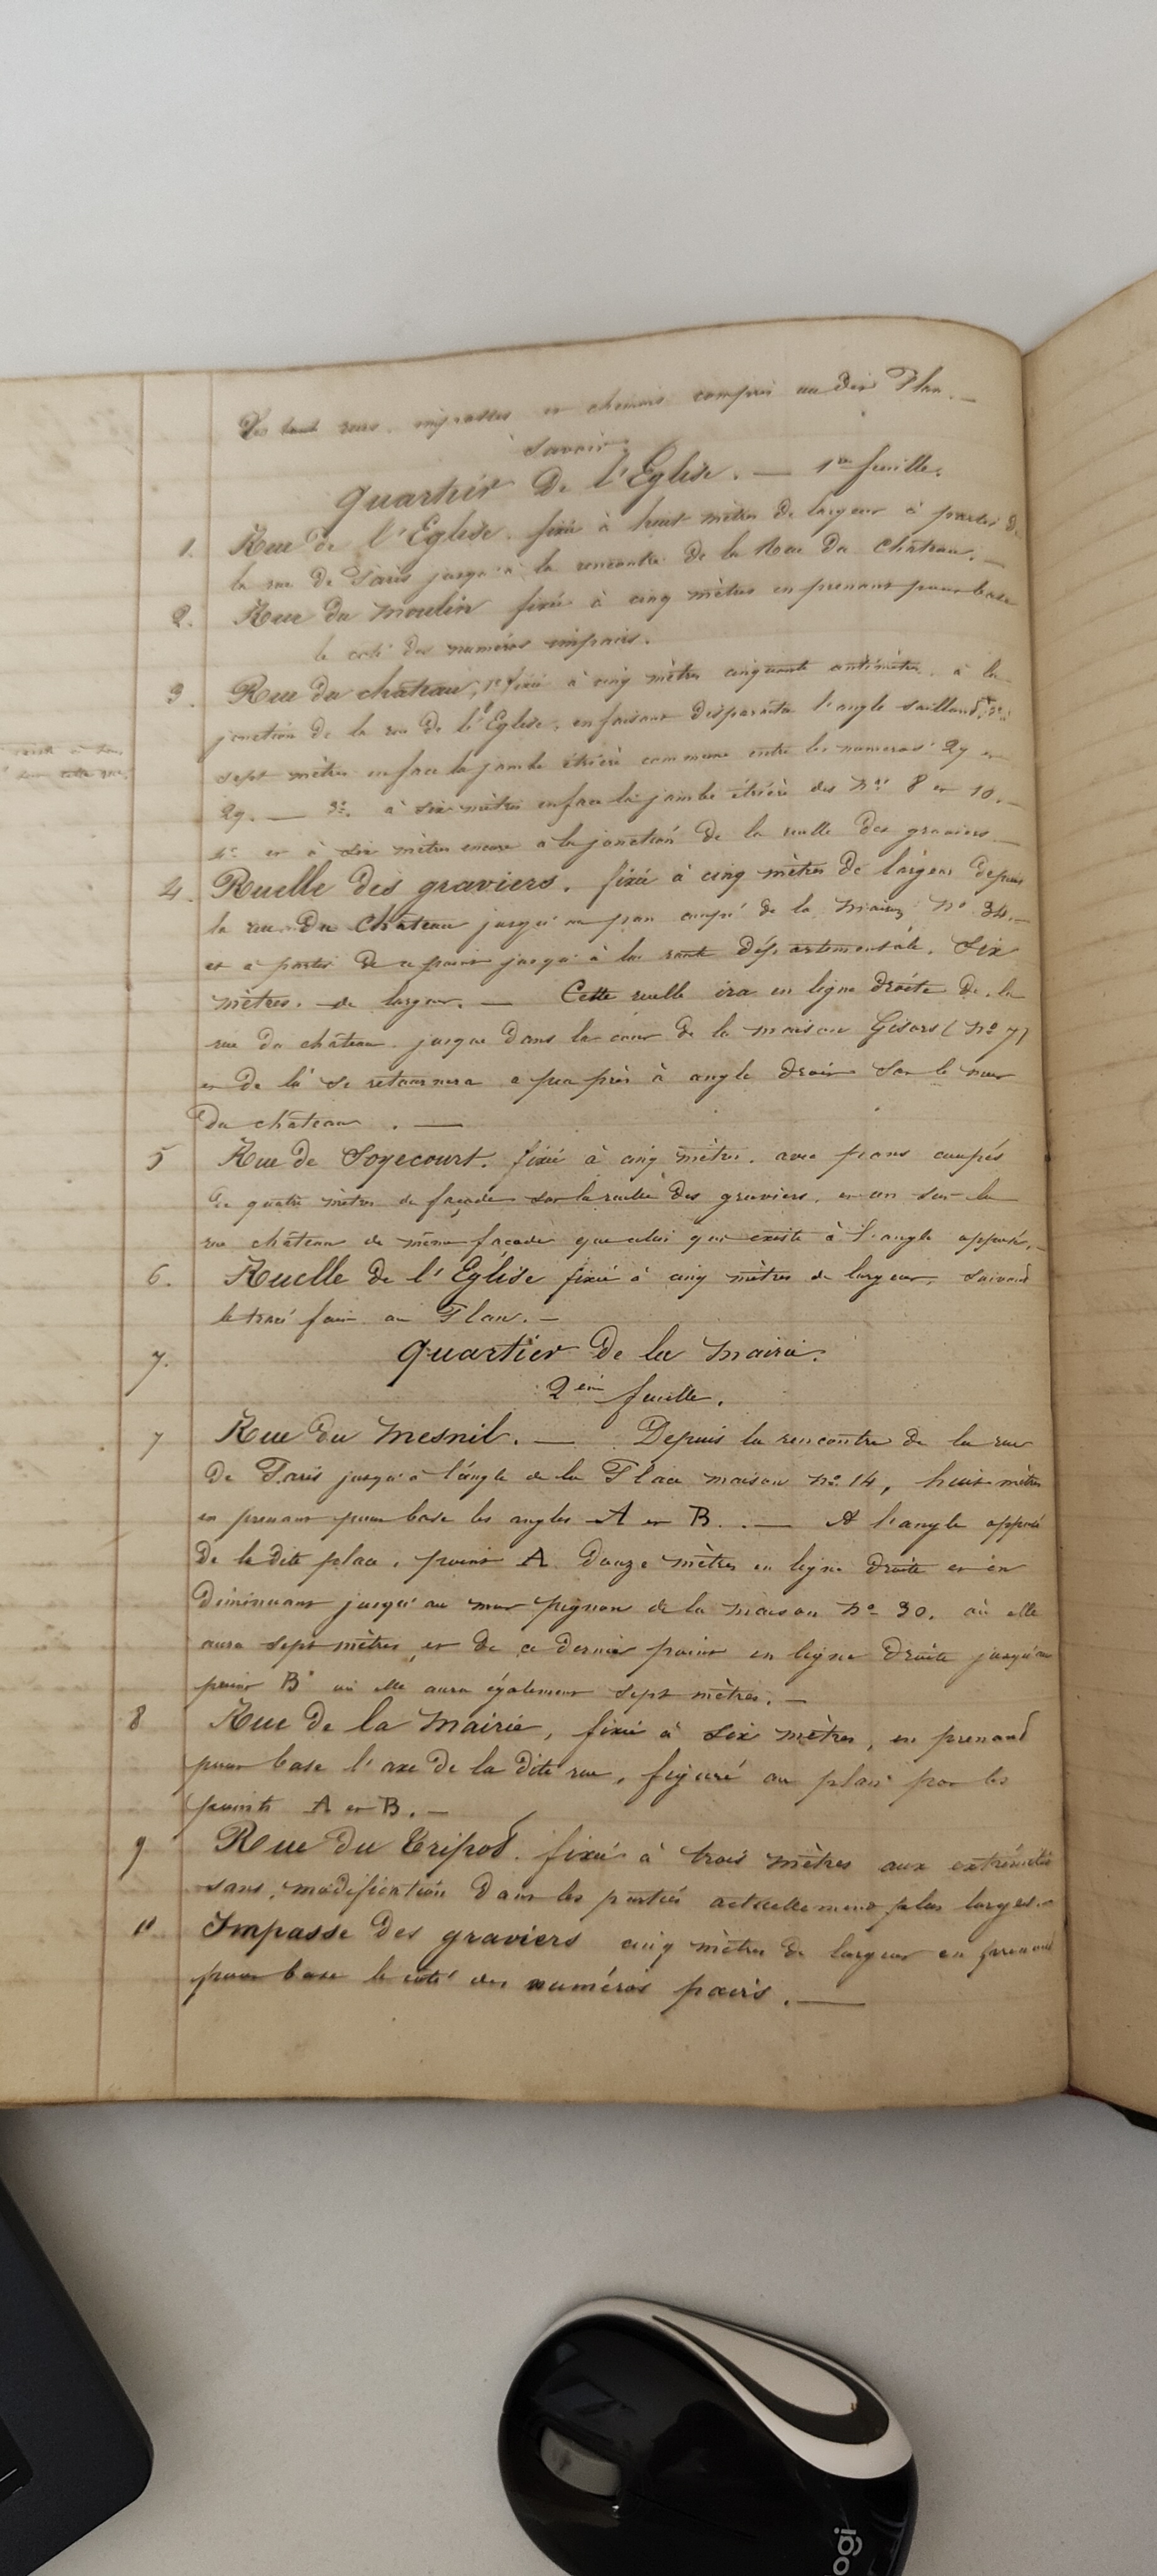 Des rues, impasses et chemins compris au dit Plan. —
Savoir:
Quartier de l'Eglise. — 1re feuille.
1. Rue de l'Eglise. fixée à huit mètres de largeur à partir de
la rue de Paris jusqu'à la rencontre de la Rue du Château. —
2. Rue du Moulin fixée à cinq mètres en prenant pour base
le coté des numéros impairs.
3. Rue du château, 1º fixée à cinq mètres cinquante centimètres, à la
jonction de la rue de l'Eglise, en faisant disparaitre l'angle saillant, 2º à
sept mètres en face la jambe étrière commune entre les numeros 27 et
29. — 3º. à six mètres en face la jambe étrière des nos 8 et 10. —
4º et à six mètres encore a la jonction de la ruelle des graviers. —
4. Ruelle des graviers. fixée à cinq mètres de largeur depuis
la rue du Château jusqu'au pan coupé de la maison no 34. —
et a partir de ce point jusqu'à la route départementale. Six
mètres. de largeur. — Cette ruelle ira en ligne droite de la
rue du château jusque dans la cour de la maison Gisors (no 7)
et de là se retournera a peu près à angle droit sur le mur
du château. —
5 Rue de Soyecourt. fixée à cinq mètres. avec pans coupés
de quatre mètres de façade sur la ruelle des graviers, et un sur la
rue château de même façade que celui qui existe à l'angle opposé. —
6. Ruelle de l'Église fixée à cinq mètres de largeur, suivant
le tracé fait au Plan. —
7. Quartier de la Mairie.
2ème feuille.
7 Rue du Mesnil. — Depuis la rencontre de la rue
de Paris jusqu'à l'angle de la Place maison no 14, huit mètres
en prenant pour base les angles A et B. — A l'angle opposé
de la dite place, point A douze mètres en ligne droite et en
diminuant jusqu'au mur pignon de la maison no 30. où elle
aura sept mètres, et de ce dernier point en ligne droite jusqu'au
point B' où elle aura également sept mètres. —
8 Rue de la Mairie, fixée à six mètres, en prenant
pour base l'axe de la dite rue, figuré au plan par les
points A et B. —
9 Rue du Tripot. fixée à trois mètres aux extrémités
sans modification dans les parties actuellement plus larges. —
10. Impasse des graviers cinq mètres de largeur en prenant
pour base le coté des numéros pairs. —
ogi